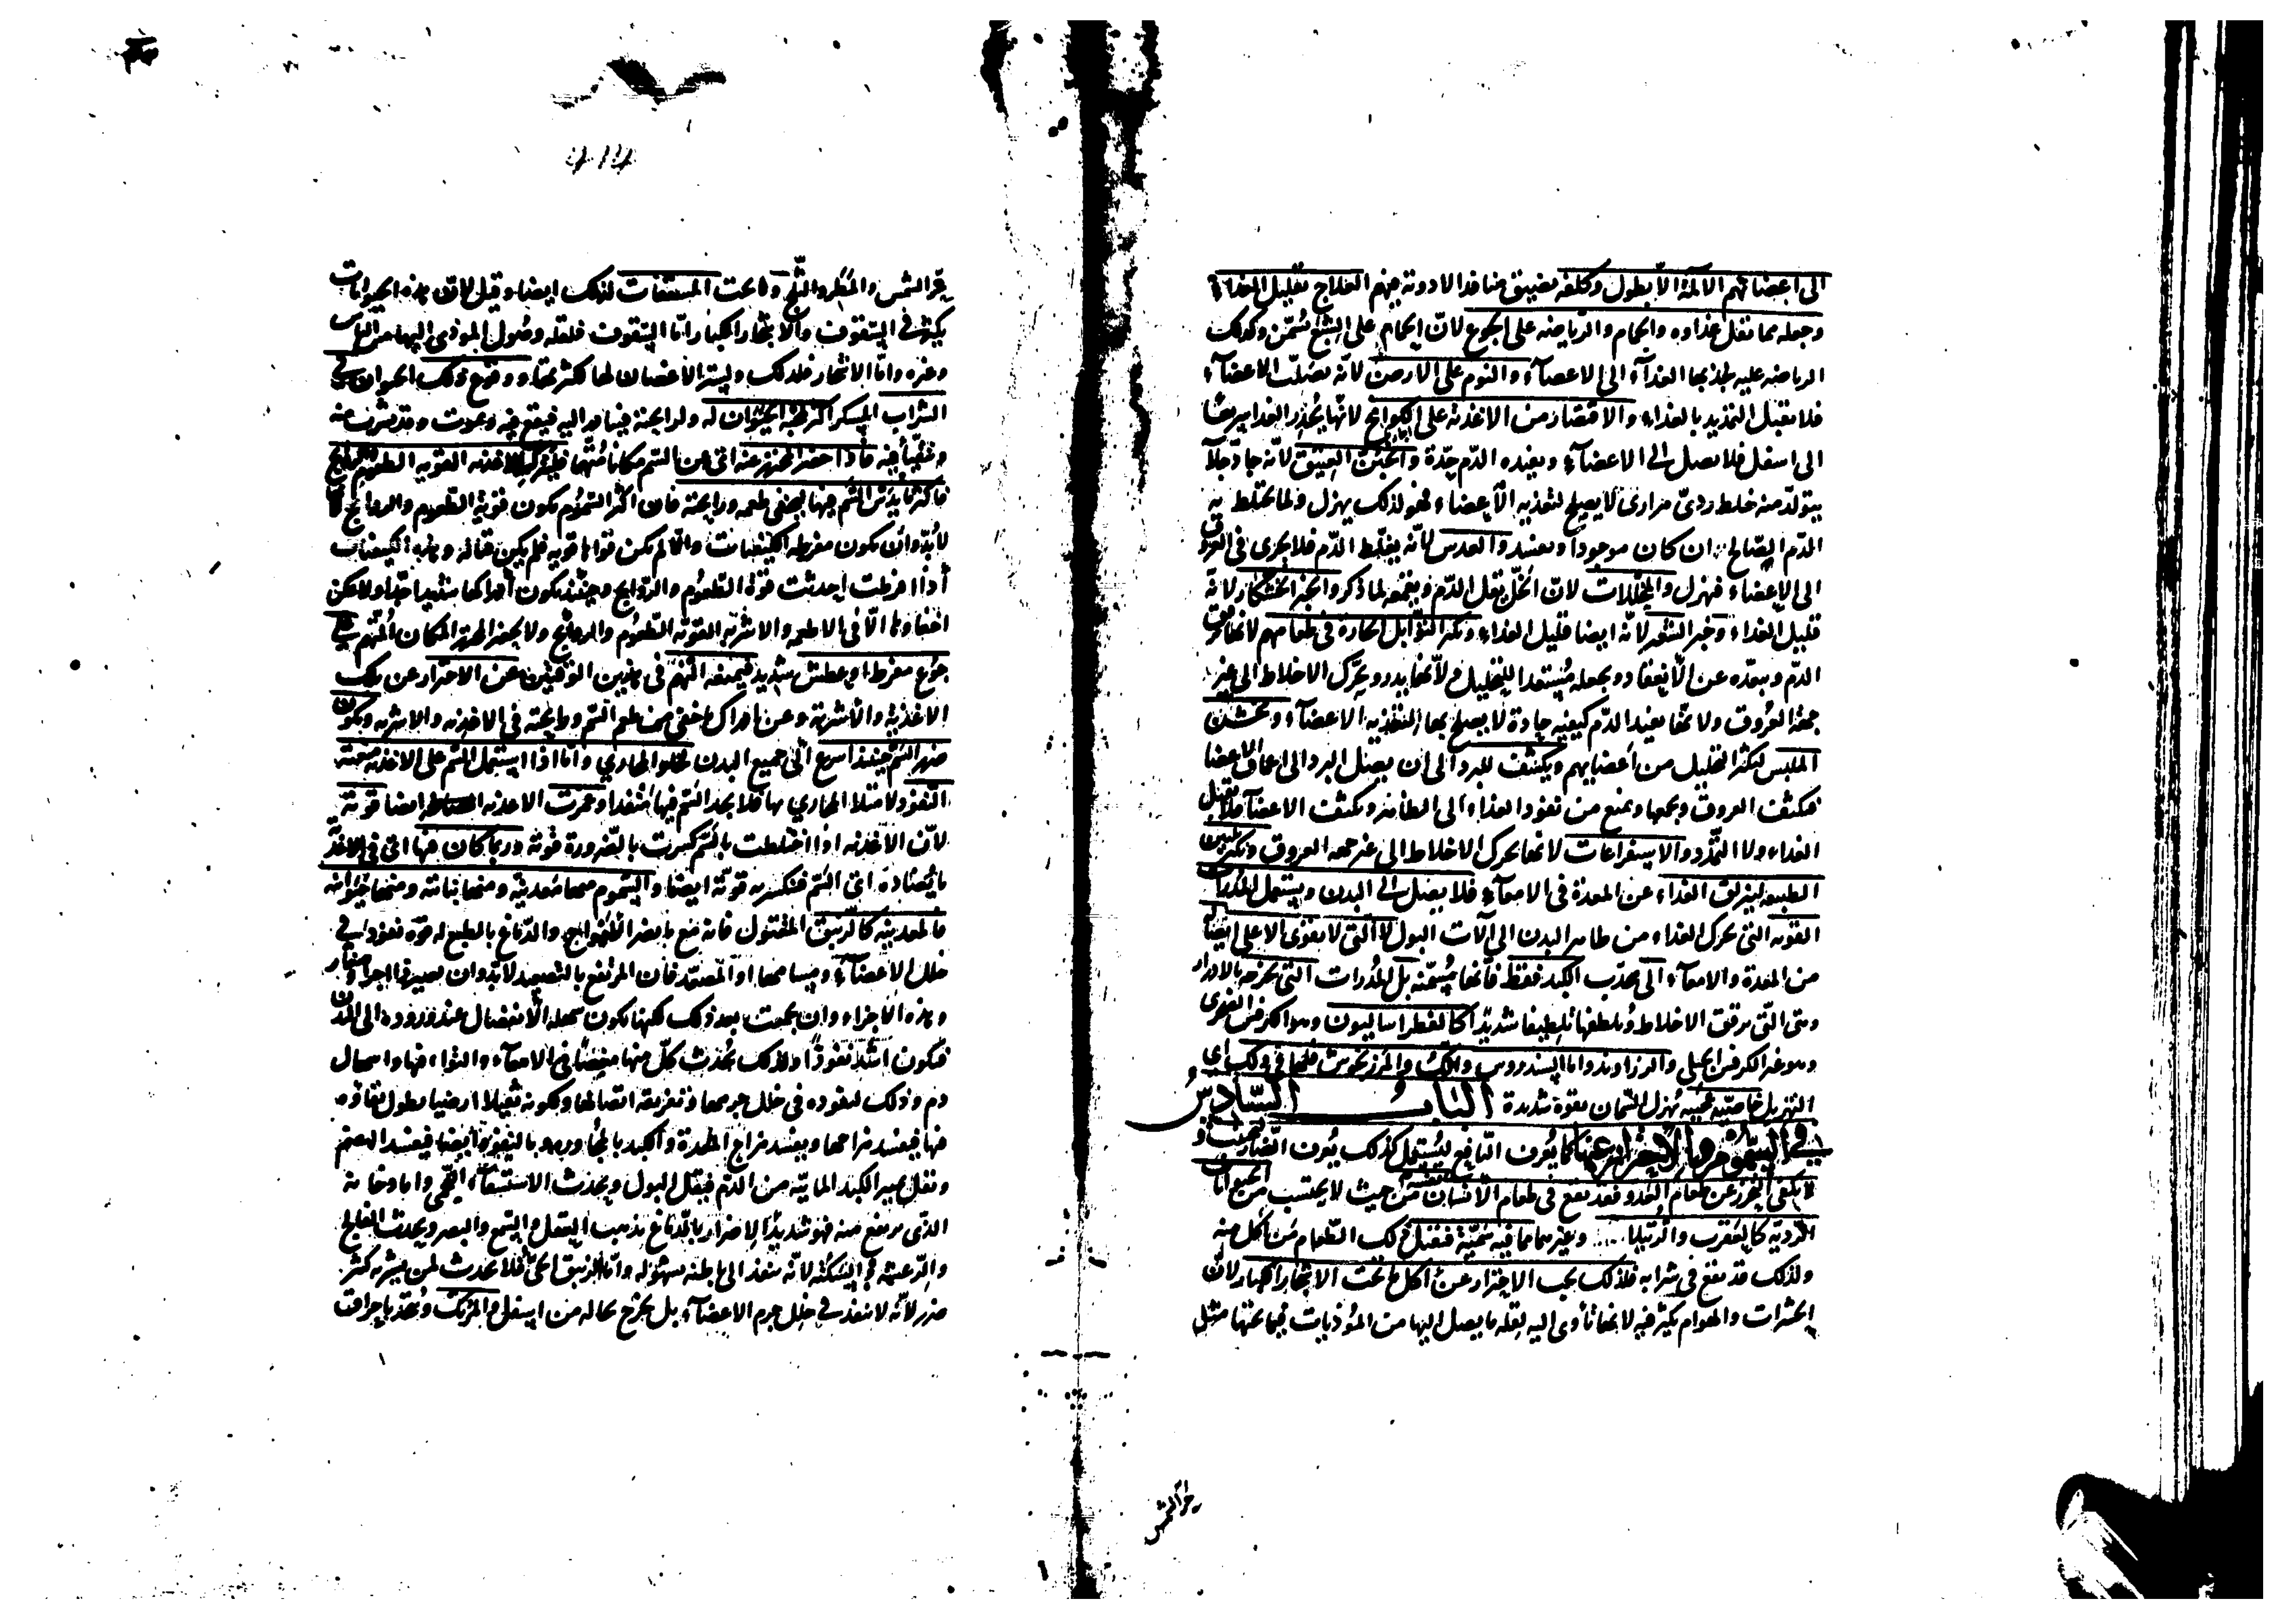 الى اعضائهم الآلمة الا بطول وكلفه لضيق منافذ الادوية فيهم العلاج تقليل الغذاء
وجعله مما تقل غذاوه والحمام والرياضه على الجوع لان الحمام على الشبع يسمن وكذلك
الرياضه عليه لجذبها الغذآء الى الاعضآء والنوم على الارض لانه يصلّب الاعضآء
فلا تقبل التمديد بالغذاء والاقتصار من الاغذية على الكوامخ لانها تحدر الغذا سريعا
الى اسفل فلا يصل الى الاعضآء ويفيده الدم حدّة والجبن العتيق لانه حاد جلّا
يتولد منه خلط ردىّ مرارى لا يصلح لتغذيه الاعضاء فهو لذلك يهزل ولما يختلط به
الدم الصالح ان كان موجودا ويفسد والعدس لانه يغلظ الدّم فلا يجرى فى العروق
الى الاعضاء فيهزل والمخللات لان الخلّ يقلل الدّم ويقمعه لما ذكر والخبز الخشكار لانه
قليل الغذاء وخبز الشعير لانه ايضا قليل الغذاء وتكثر التوابل الحارة فى طعامهم لانها ترقق
الدّم وتبعده عن الانعقاد وتجعله مستعدا للتحليل ولانها تدر وتحرك الاخلاط الى غير
جهة العروق ولانها تفيد الدّم كيفيه حادة لا يصلح بها لتغذيه الاعضآء وتخشن
الملبس ليكثر التحليل من اعضايهم ويكشف للبرد الى ان يصل البرد الى اعماق الاعضا
فيكثف العروق ويجمعها ويمنع من نفوذ الغذاء الى الظاهر ويكثف الاعضآ فلا تقبل
الغذاء ولا التمدد والاستفراغات لانها تحرك الاخلاط الى غير جهه العروق وتكثر تليين
الطبيعه لينزلق الغذاء عن المعدة فى الامعآء فلا يصل الى البدن ويستعمل المدرات
القويه التى تحرك الغذاء من ظاهر البدن الى آلات البول لا التى لا تقوى الا على ايصال
من المعدة والامعآء الى محدّب الكبد فقط فانها مسمّنه بل المدرات التى تخرجه بالادرار
وهى التى ترقق الاخلاط وتلطفها تلطيفا شديدا كالفطراساليون وهو الكرفس الصخرى
وهو غير الكرفس الجبلى والزراوند واما السندروس واللك والمرزنجوش فلها فى ذلك اى
التهزيل خاصيّه عجيبه تهزل السّمان بقوة شديدة البابُ السّادسُ
فى السّموم والاحتراز عنها كما يعرف النافع ليستعمل كذلك يعرف الضار ليجتنب و
لا يكفى التحرز عن طعام العدو فقد يقع فى طعام الانسان نفسه من حيث لا يحتسب من الحيوانات
الرديّة كالعقرب والرتيلا .... وغيرهما مما فيه سمّية فتقتل ذلك الطعام من اكل منه
ولذلك قد تقع فى شرابه فلذلك يجب الاحتراز عن اكل ما تحت الاشجار الكبار لان
الحشرات والهوام يكثر فيه لانها تأوى اليه لقله ما يصل اليها من المؤذيات فيما تحتها مثل
حرّ الشمس
حرّ الشمس والمطر والثلج وما تحت المسقفات لذلك ايضا وقيل لان هذه الحيوانات
يكثر فى السقوف والاشجار الكبار امّا السقوف فلقله وصول الموذى اليها من الناس
وغيره وامّا الاشجار فلذلك ولستر الاغصان لها لكثرتها ووقوع ذلك الحيوان فى
الشراب المسكر اكثر لمحبة الحيوان له ولرايحته فيبادر اليه فيقع فيه ويموت وقد يشرب منه
ويتقيأ فيه فاذا حضر المتحرز عنه اى عن السّم مكانا متّهما فليترك الاغذيه القويه الطعوم والروايح
فاكثر ما يدسّ السّم فيها ليخفى طعمه ورايحته فان اكثر السّموم تكون قوية الطعوم والروايح لما
لا بدّ وان تكون مفرطه الكيفيات والا لم تكن قواها قويه فلم يكن قتاله وهذه الكيفيات
اذا افرطت احدثت قوة الطعوم والروايح وحينئذ يكون ادراكها شديدا جدا ولا يمكن
اخفاوها الّا فى الاطعمه والاشربه القويه الطعوم والروايح ولا يحضر المتحرز المكان المتّهم فى
جوع مفرط او عطش شديد فيمنعه النّهم فى هذين الوقتين عن الاحتراز عن تلك
الاغذية والاشربة وعن ادراك ما خفى من طعم السّم ورايحته فى الاغذيه والاشربه ويكون
ضرر السّم حينئذ اسرع الى جميع البدن لخلو المجارى وامّا اذا استعمل السّم على الاغذيه منعته
النفوذ لامتلا المجارى بها فلا يجد السّم فيها منفذا وغمرت الاغذيه المخالطة ايضا قوته
لان الاغذيه اذا اختلطت بالسّم كسرت بالضرورة قوته وربما كان فيها اى فى الاغذية
ما يضادّه اى السّم فتكسر به قوته ايضا والسّموم منها معدنية ومنها نباتية ومنها حيوانيه
فالمعدنيه كالزيبق المقتول فانه مع ما يضر الامزجة والدّماغ بالطبع له قوه نفوذ فى
خلل الاعضآء ومسامها او المصعّد فان المرتفع بالتصعيد لا بدّ وان تصير اجزاوه صغار
وهذه الاجزاء وان تجمعت بعد ذلك لكنها تكون سهله الانفصال عند وروده الى البدن
فيكون اشد نفوذا ولذلك يحدث كل منهما مغصا فى الامعآء والتواء فيها واسهال
دم وذلك لنفوذه فى خلل جرمها وتفريقه اتصالها ولكونه ثقيلا ارضيا يطول بقاؤه
فيها فيفسد مزاجها ويفسد مزاج المعدة والكبد بالمجاورة وبالنفوذ ايضا فيفسد الهضم
وتقل تمييز الكبد المائيّه من الدّم فيقل البول ويحدث الاستسقآء اللحمى واما دخانه
الذى يرتفع منه فهو شديد الاضرار بالدّماغ يذهب العقل والسّمع والبصر ويحدث الفالج
والرّعشه والسّكته لانه ينفذ الى باطنه بسهوله وامّا الزيبق الحىّ فلا يحدث لمن يشربه كثير
ضرر لانه لا ينفذ فى خلل جرم الاعضآء بل يخرج بحاله من اسفل والمرتك ويحدث باحراق